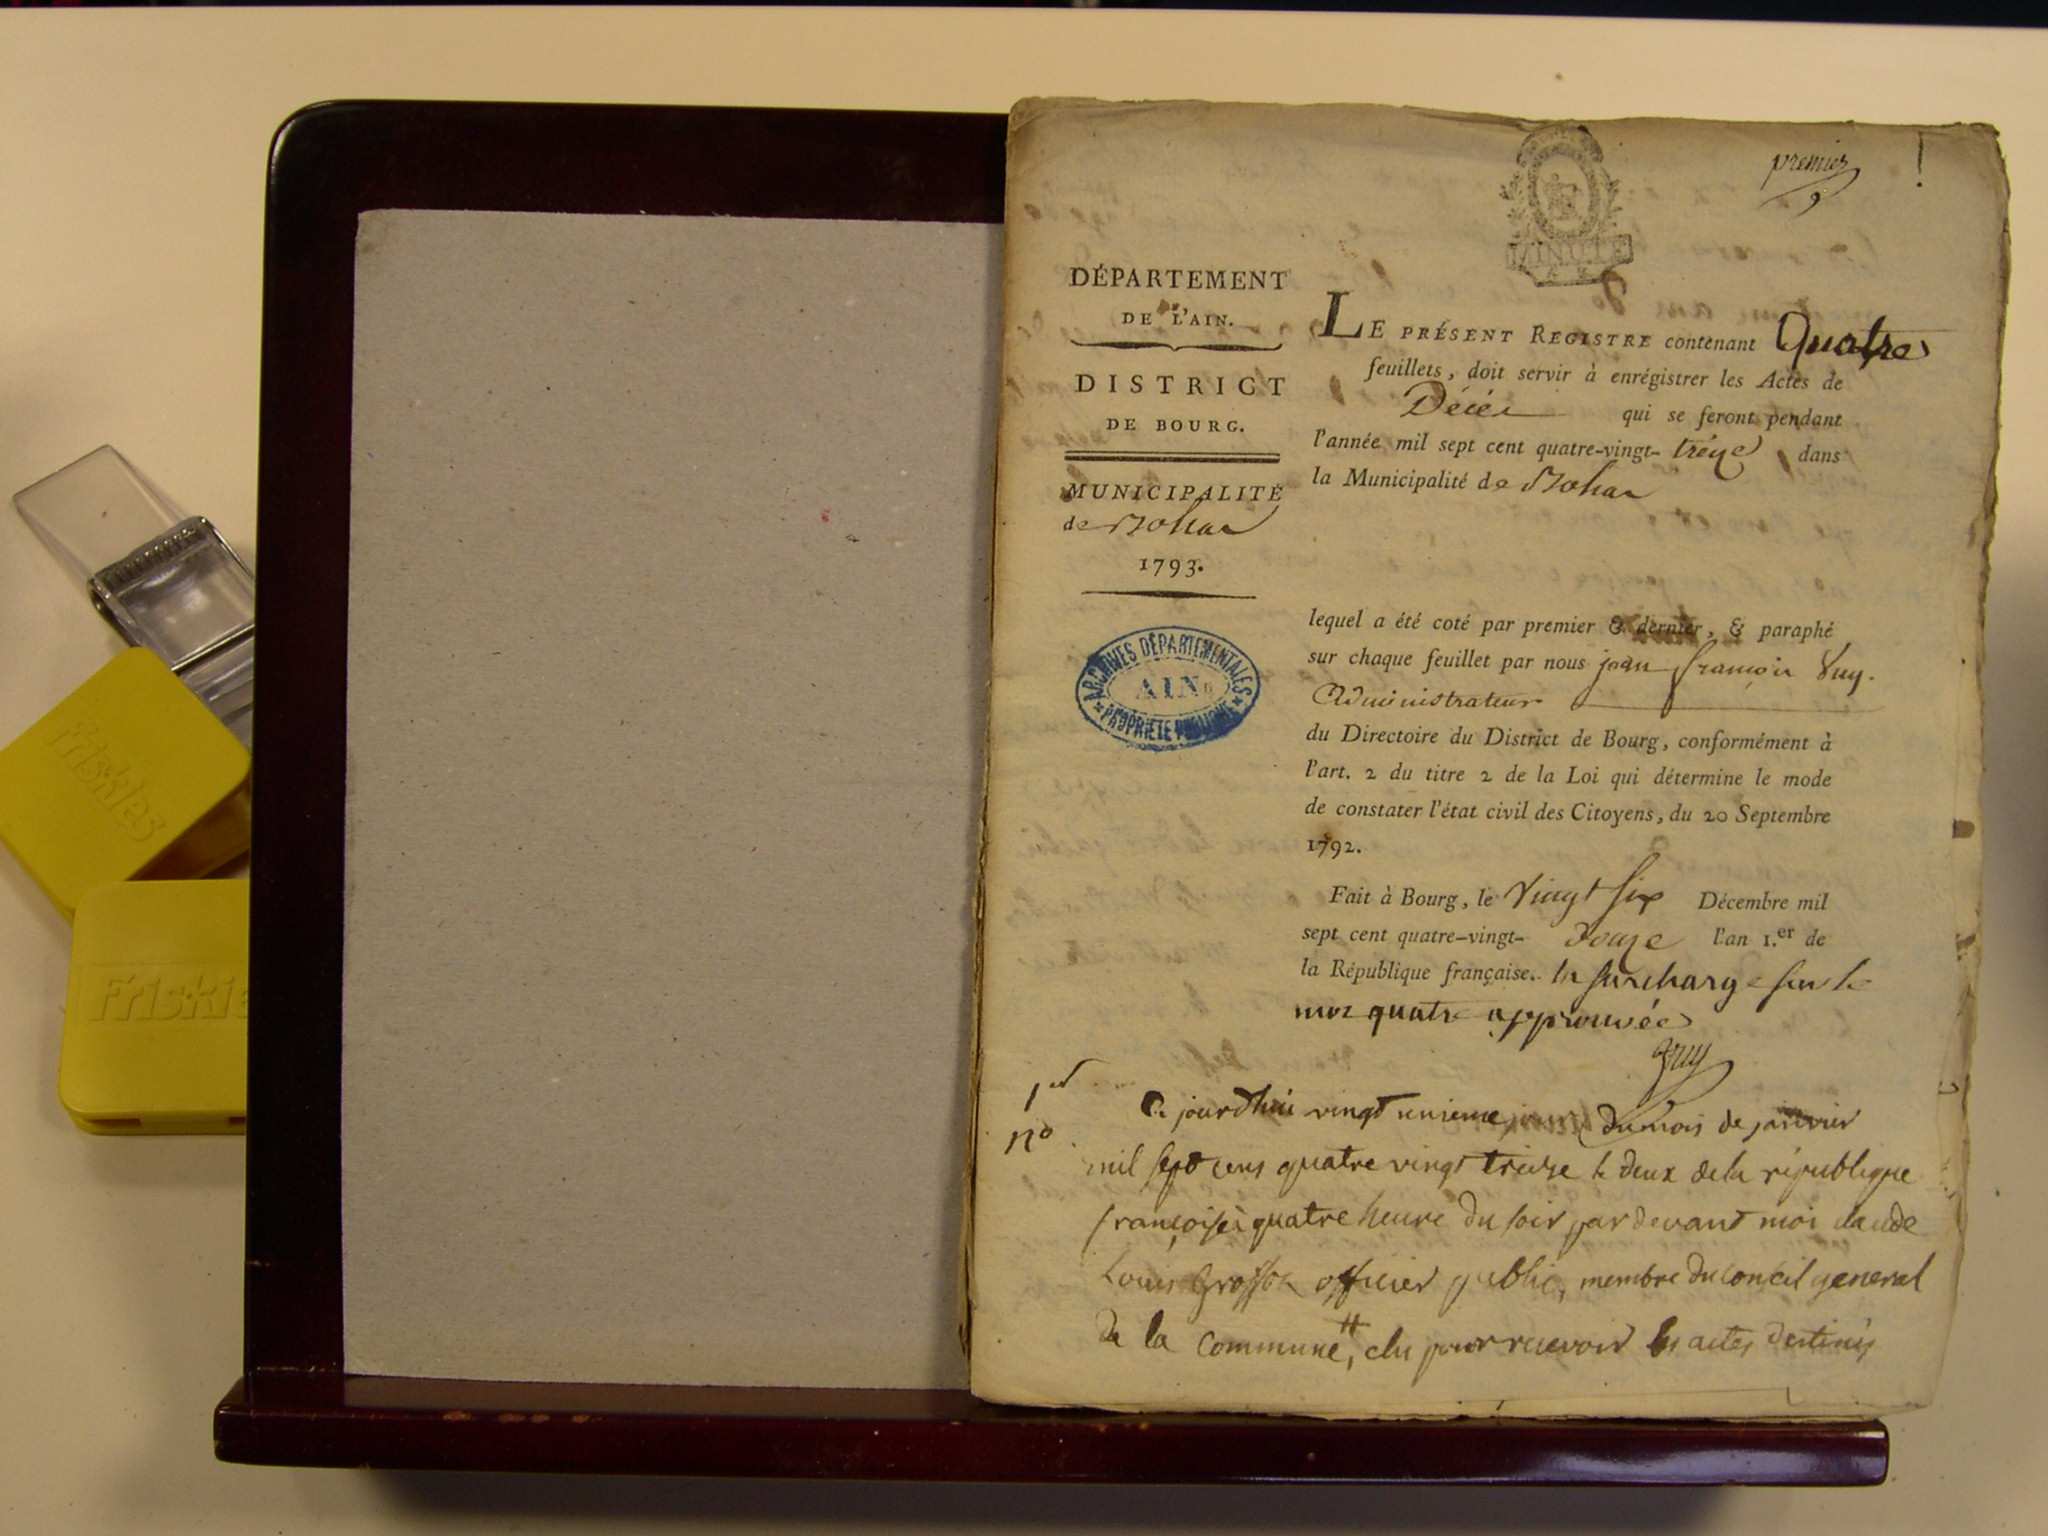 premier
MINUTE
DÉPARTEMENT
DE L'AIN.
DISTRICT
DE BOURG.
MUNICIPALITÉ
de Bohas
1793.
ARCHIVES DÉPARTEMENTALES
AIN
PROPRIÉTÉ PUBLIQUE
LE PRÉSENT REGISTRE contenant Quatre
feuillets, doit servir à enrégistrer les Actes de
Décès qui se feront pendant
l'année mil sept cent quatre-vingt- treize, dans
la Municipalité de Bohas
lequel a été coté par premier & dernier, & paraphé
sur chaque feuillet par nous jean françois Vuy.
Administrateur
du Directoire du District de Bourg, conformément à
l'art. 2 du titre 2 de la Loi qui détermine le mode
de constater l'état civil des Citoyens, du 20 Septembre
1792.
Fait à Bourg, le Vingt six Décembre mil
sept cent quatre-vingt- douze l'an 1.er de
la République française. la surcharge sur le
mot quatre approuvée
Vuy
1er
no
Ce jourdhui vingt unieme du mois de janvier
mil sept cens quatre vingt treize le deux de la république
françoise à quatre heure du soir par devant moi claude
Louis officier public, membre du conseil general
de la commune, elu pour recevoir les actes destinés
Friskies
Friskie